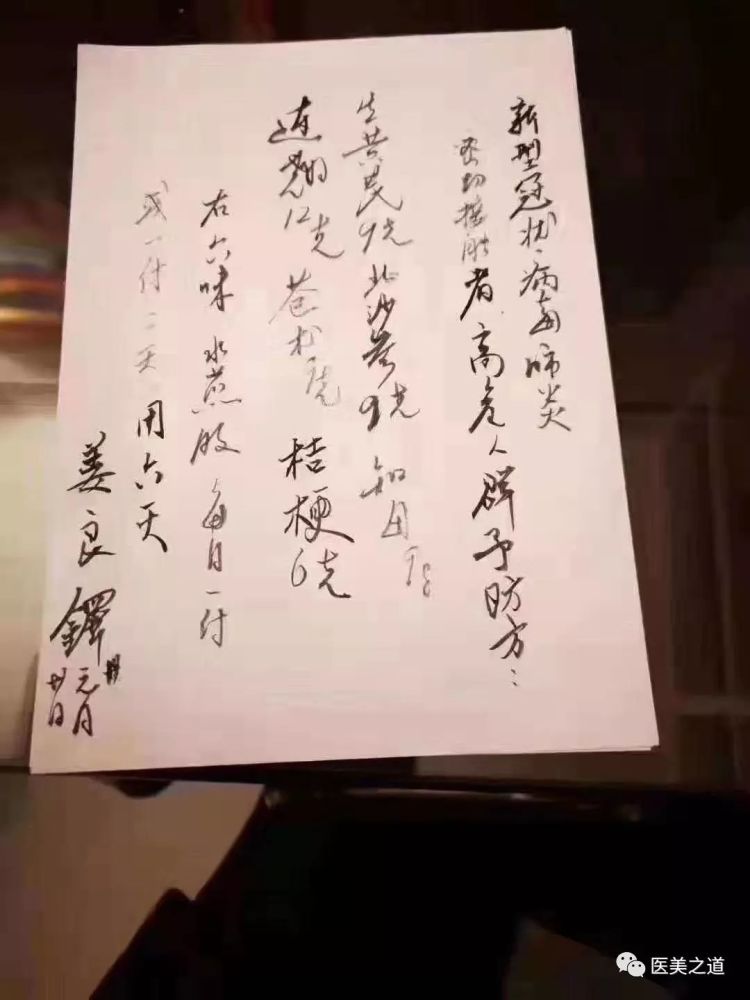 新型冠状病毒肺炎
密切接触者、高危人群予防方：
生黄芪9克 北沙参9克 知母
连翘12克 苍术 克 桔梗6克
右六味 水煎服 每日一付
或一付二天 用六天
姜良铎
元月
廿日
医美之道